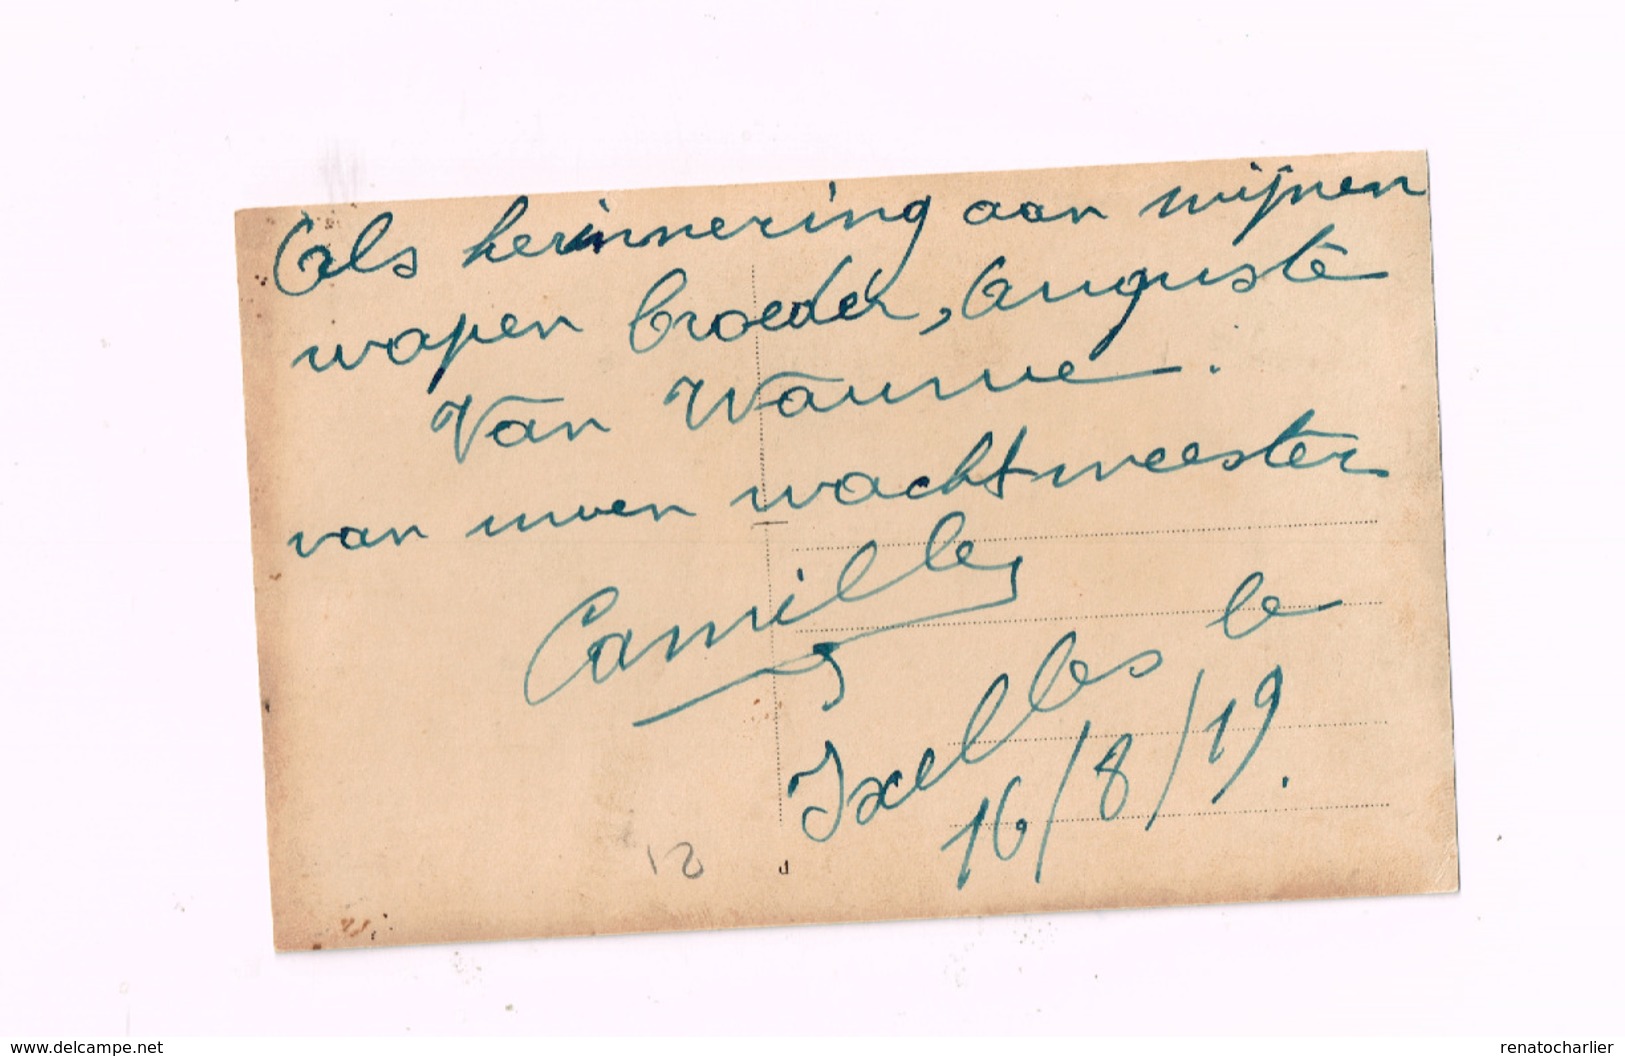 Als herinnering aan mijnen
wapen broeder, Auguste
Van Wauwe.
van uwen wachtmeester
Camille
Ixelles le
16/8/19.
12
d
www.delcampe.net
renatocharlier